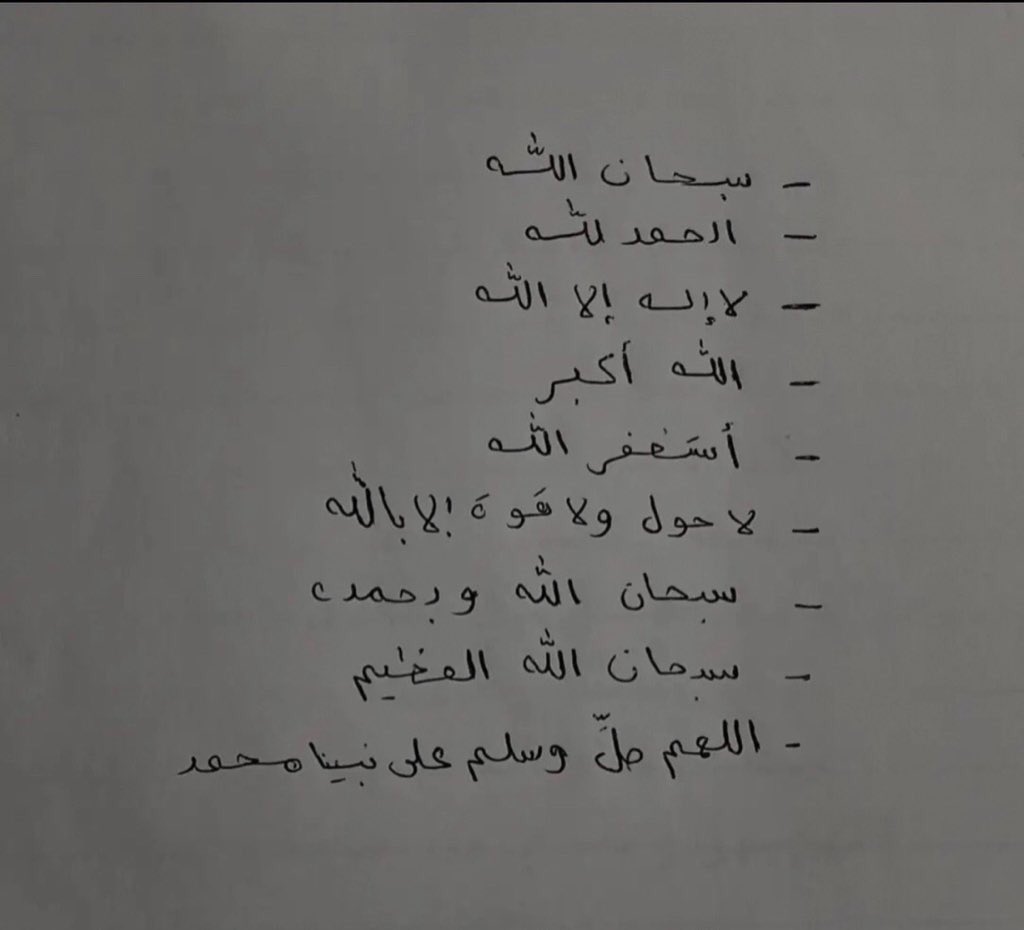 - سبحان الله
- الحمد لله
- لا إله إلا الله
- الله أكبر
- أستغفر الله
- لا حول ولا قوة إلا بالله
- سبحان الله وبحمده
- سبحان الله العظيم
- اللهم صلِّ وسلم على نبينا محمد